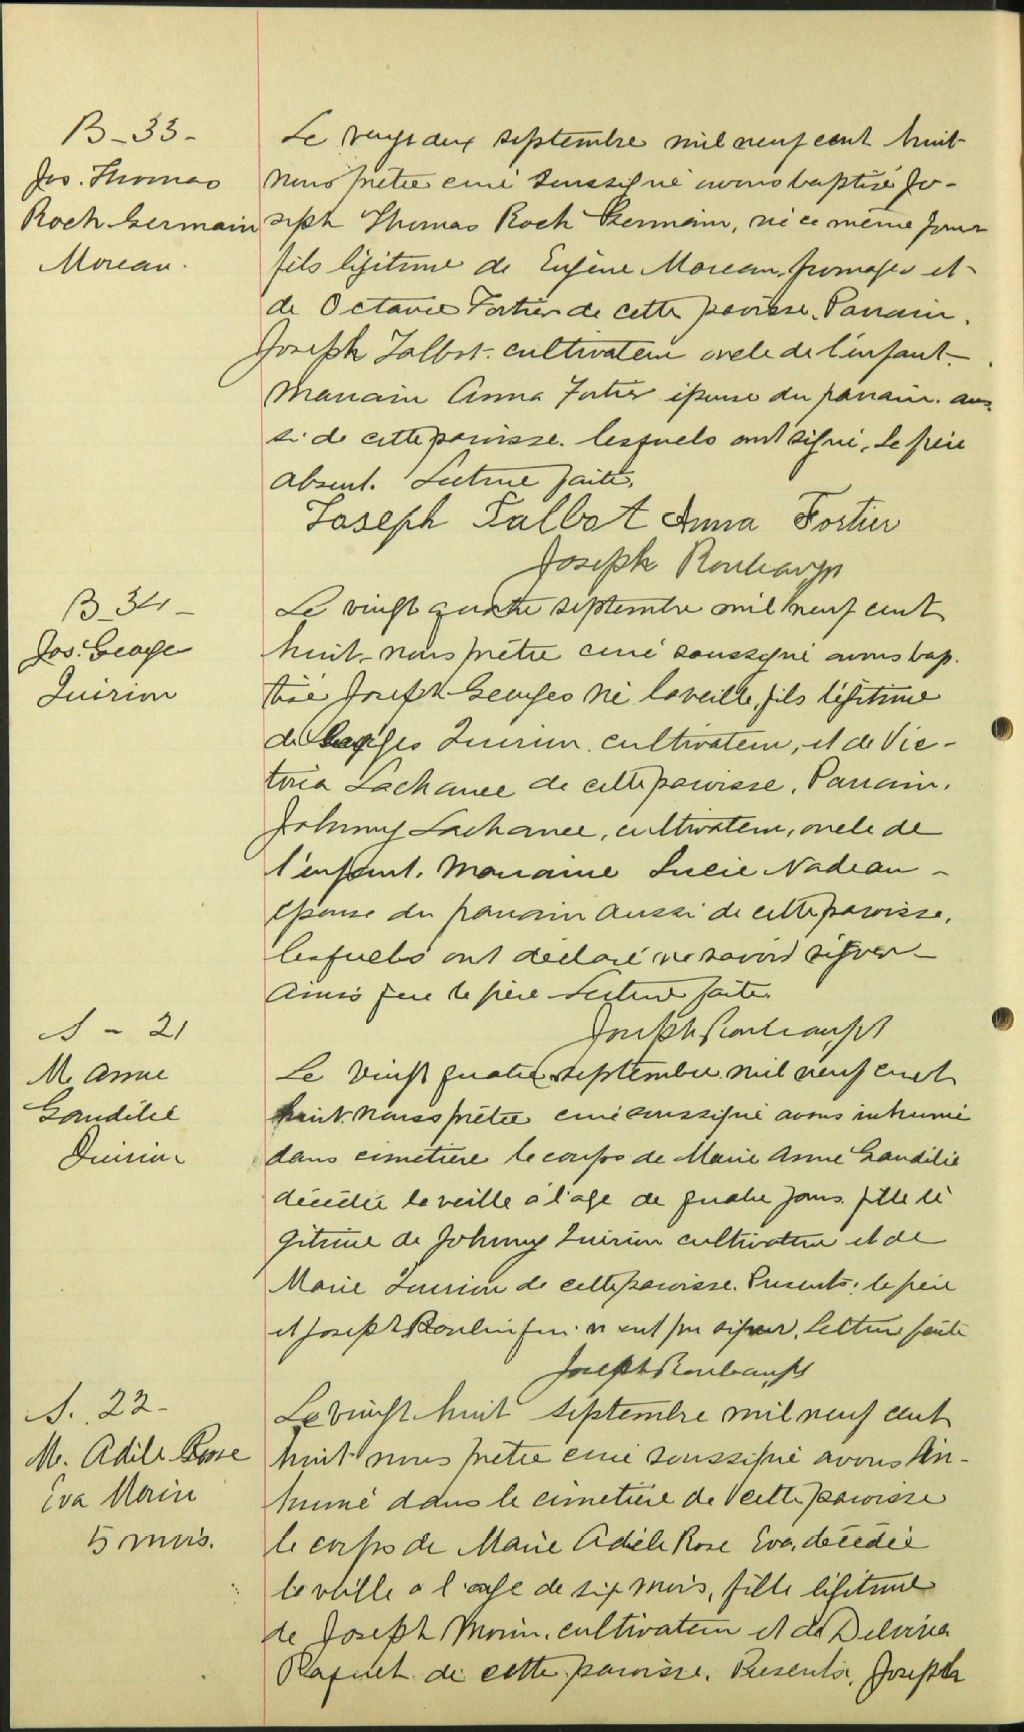 B-33-
Jos. Thomas
Roch Germain
Moreau.
Le vingt deux septembre mil neuf cent huit
nous prêtre curé soussigné avons baptisé Jo-
seph Thomas Roch Germain, né ce même jour
fils légitime de Eugène Moreau, fromager et
de Octavie Fortier de cette paroisse. Parrain.
Joseph Talbot cultivateur oncle de l'enfant
Marraine Anna Fortier épouse du parrain. aus
si de cette paroisse. lesquels ont signé, Le père
absent. Lecture faite.
Joseph Talbot Anna Fortier
Joseph
B-34-
Jos. George
Quirion
Le vingt quatre septembre mil neuf cent
huit, nous prêtre curé soussigné avons bap.
tisé Joseph Georges né la veille, fils légitime
de Georges Quirion cultivateur, et de Vic-
toria Lachance de cette paroisse. Parrain.
Johnny Lachance, cultivateur, oncle de
l'enfant. Marraine Lucie Nadeau -
épouse du parrain aussi de cette paroisse.
lesquels ont déclaré ne savoir signer
ainsi que le père Lecture faite.
Joseph
S - 21
M. Anne
Quirion
Le vingt quatre septembre mil neuf cent
huit. nous prêtre curé soussigné avons inhumé
dans cimetière le corps de Marie Anne
décédée la veille à l'age de quatre jours. fille lé
gitime de Johnny Quirion cultivateur et de
Marie Quirion de cette paroisse. Présents: le père
et Joseph Poulin qui n'ont pu signer. Lecture faite
Joseph
S. 22-
M. Adile Rose
Eva Morin
5 mois.
Le vingt huit septembre mil neuf cent
huit nous prêtre curé soussigné avons in-
humé dans le cimetière de cette paroisse
le corps de Marie Adèle Rose Eva, décédée
la veille a l'age de six mois, fille légitime
de Joseph Morin, cultivateur et de Delvina
Paquet de cette paroisse. Présents, Joseph